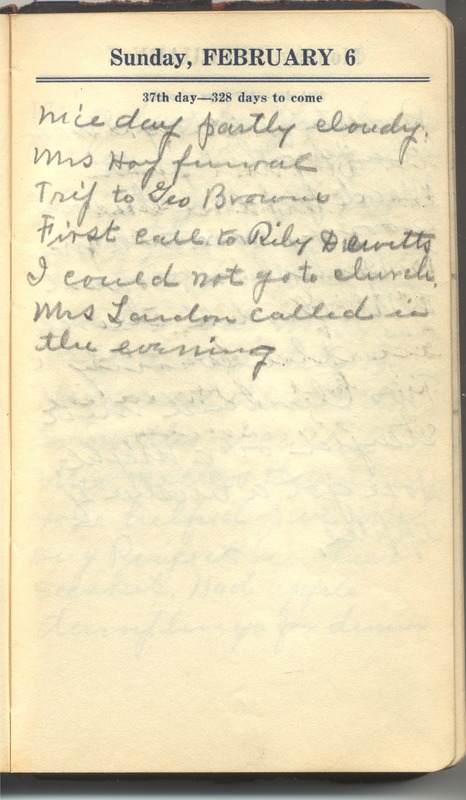 Sunday, FEBRUARY 6
37th day—328 days to come
Nice day partly cloudy.
Mrs Hoy funeral
Trip to Geo Browns
First call to Rily Dewitts
I could not go to church.
Mrs Landon called in
the evening